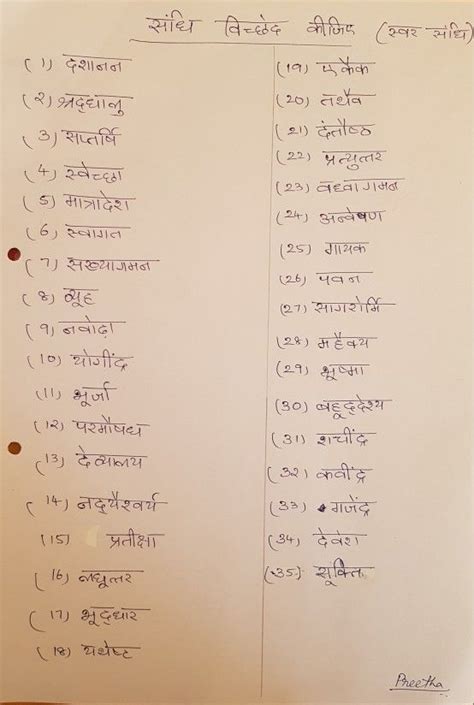 संधि विच्छेद कीजिए (स्वर संधि)
(1) दशानन
(2) श्रद्धालु
(3) सप्तर्षि
(4) स्वेच्छा
(5) मात्रादेश
(6) स्वागत
(7) सख्यागमन
(8) व्यूह
(9) नवोढ़ा
(10) योगींद्र
(11) भूर्जा
(12) परमौषध
(13) देव्यालय
(14) नद्यैश्वर्य
(15) प्रतीक्षा
(16) लघूत्तर
(17) भूद्धार
(18) यथेष्ट
(19) एकैक
(20) तथैव
(21) दंतौष्ठ
(22) प्रत्युत्तर
(23) वध्वागमन
(24) अन्वेषण
(25) गायक
(26) पवन
(27) सागरोर्मि
(28) महैक्य
(29) भूष्मा
(30) बहूद्देश्य
(31) शचींद्र
(32) कवींद्र
(33) गजेंद्र
(34) देवेश
(35) सूक्ति
Preetha